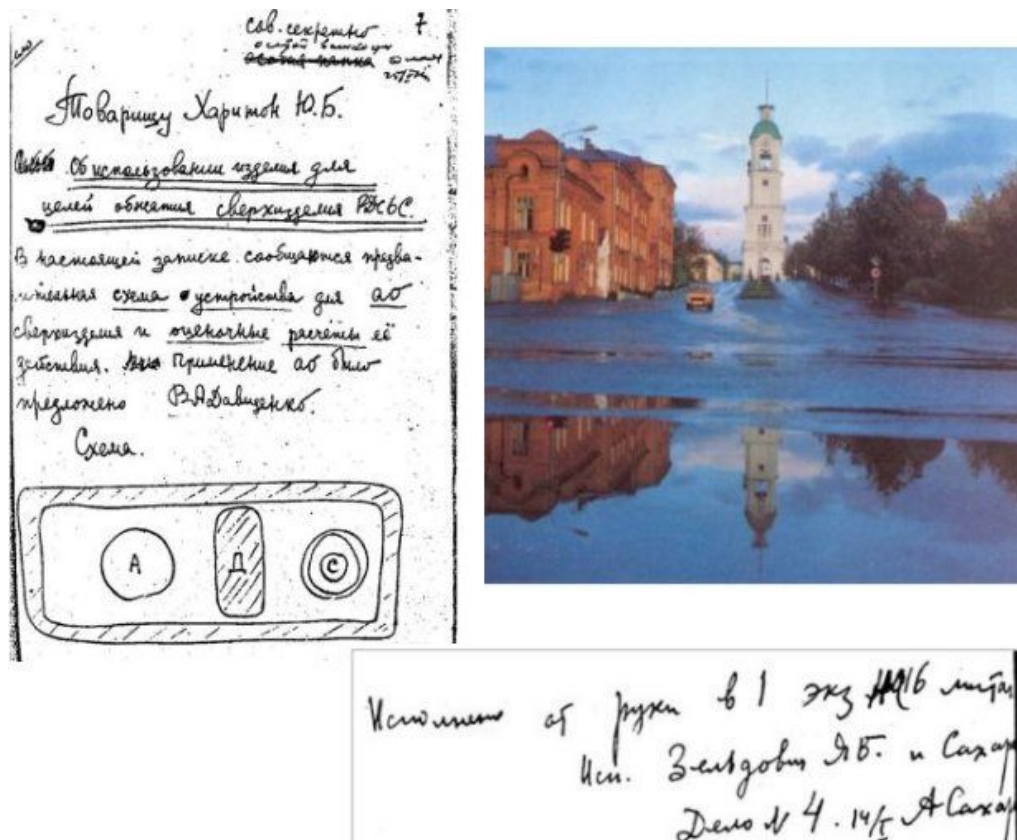 сов. секретно 7
особая папка
Товарищу Харитон Ю.Б.
Об использовании изделия для
целей обжатия сверхизделия РДС-6С.
В настоящей записке сообщаются предва-
ительная схема устройства для АО
сверхизделия и оценочные расчёты её
действия. Применение АО было
предложено В.А.Давиденко.
Схема.
А Д С
Исполнено от руки в 1 экз 16 листах
Исп. Зельдович Я.Б. и Сахар
Дело N 4. 14/I А Сахар